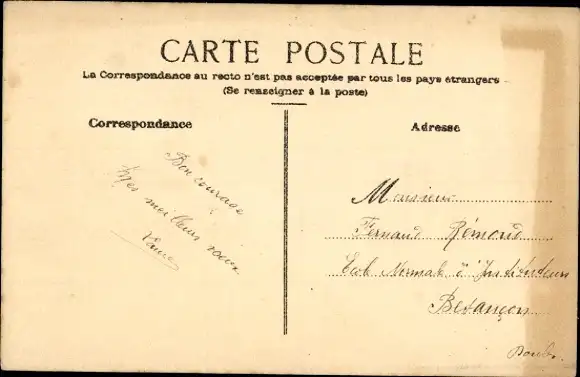 CARTE POSTALE
La Correspondance au recto n'est pas acceptée par tous les pays étrangers
(Se renseigner à la poste)
Correspondance
Bon courage
Mes meilleurs voeux
Adresse
Monsieur
Fernand Rémond
Ecole Normale d'Instituteurs
Besançon
Doubs